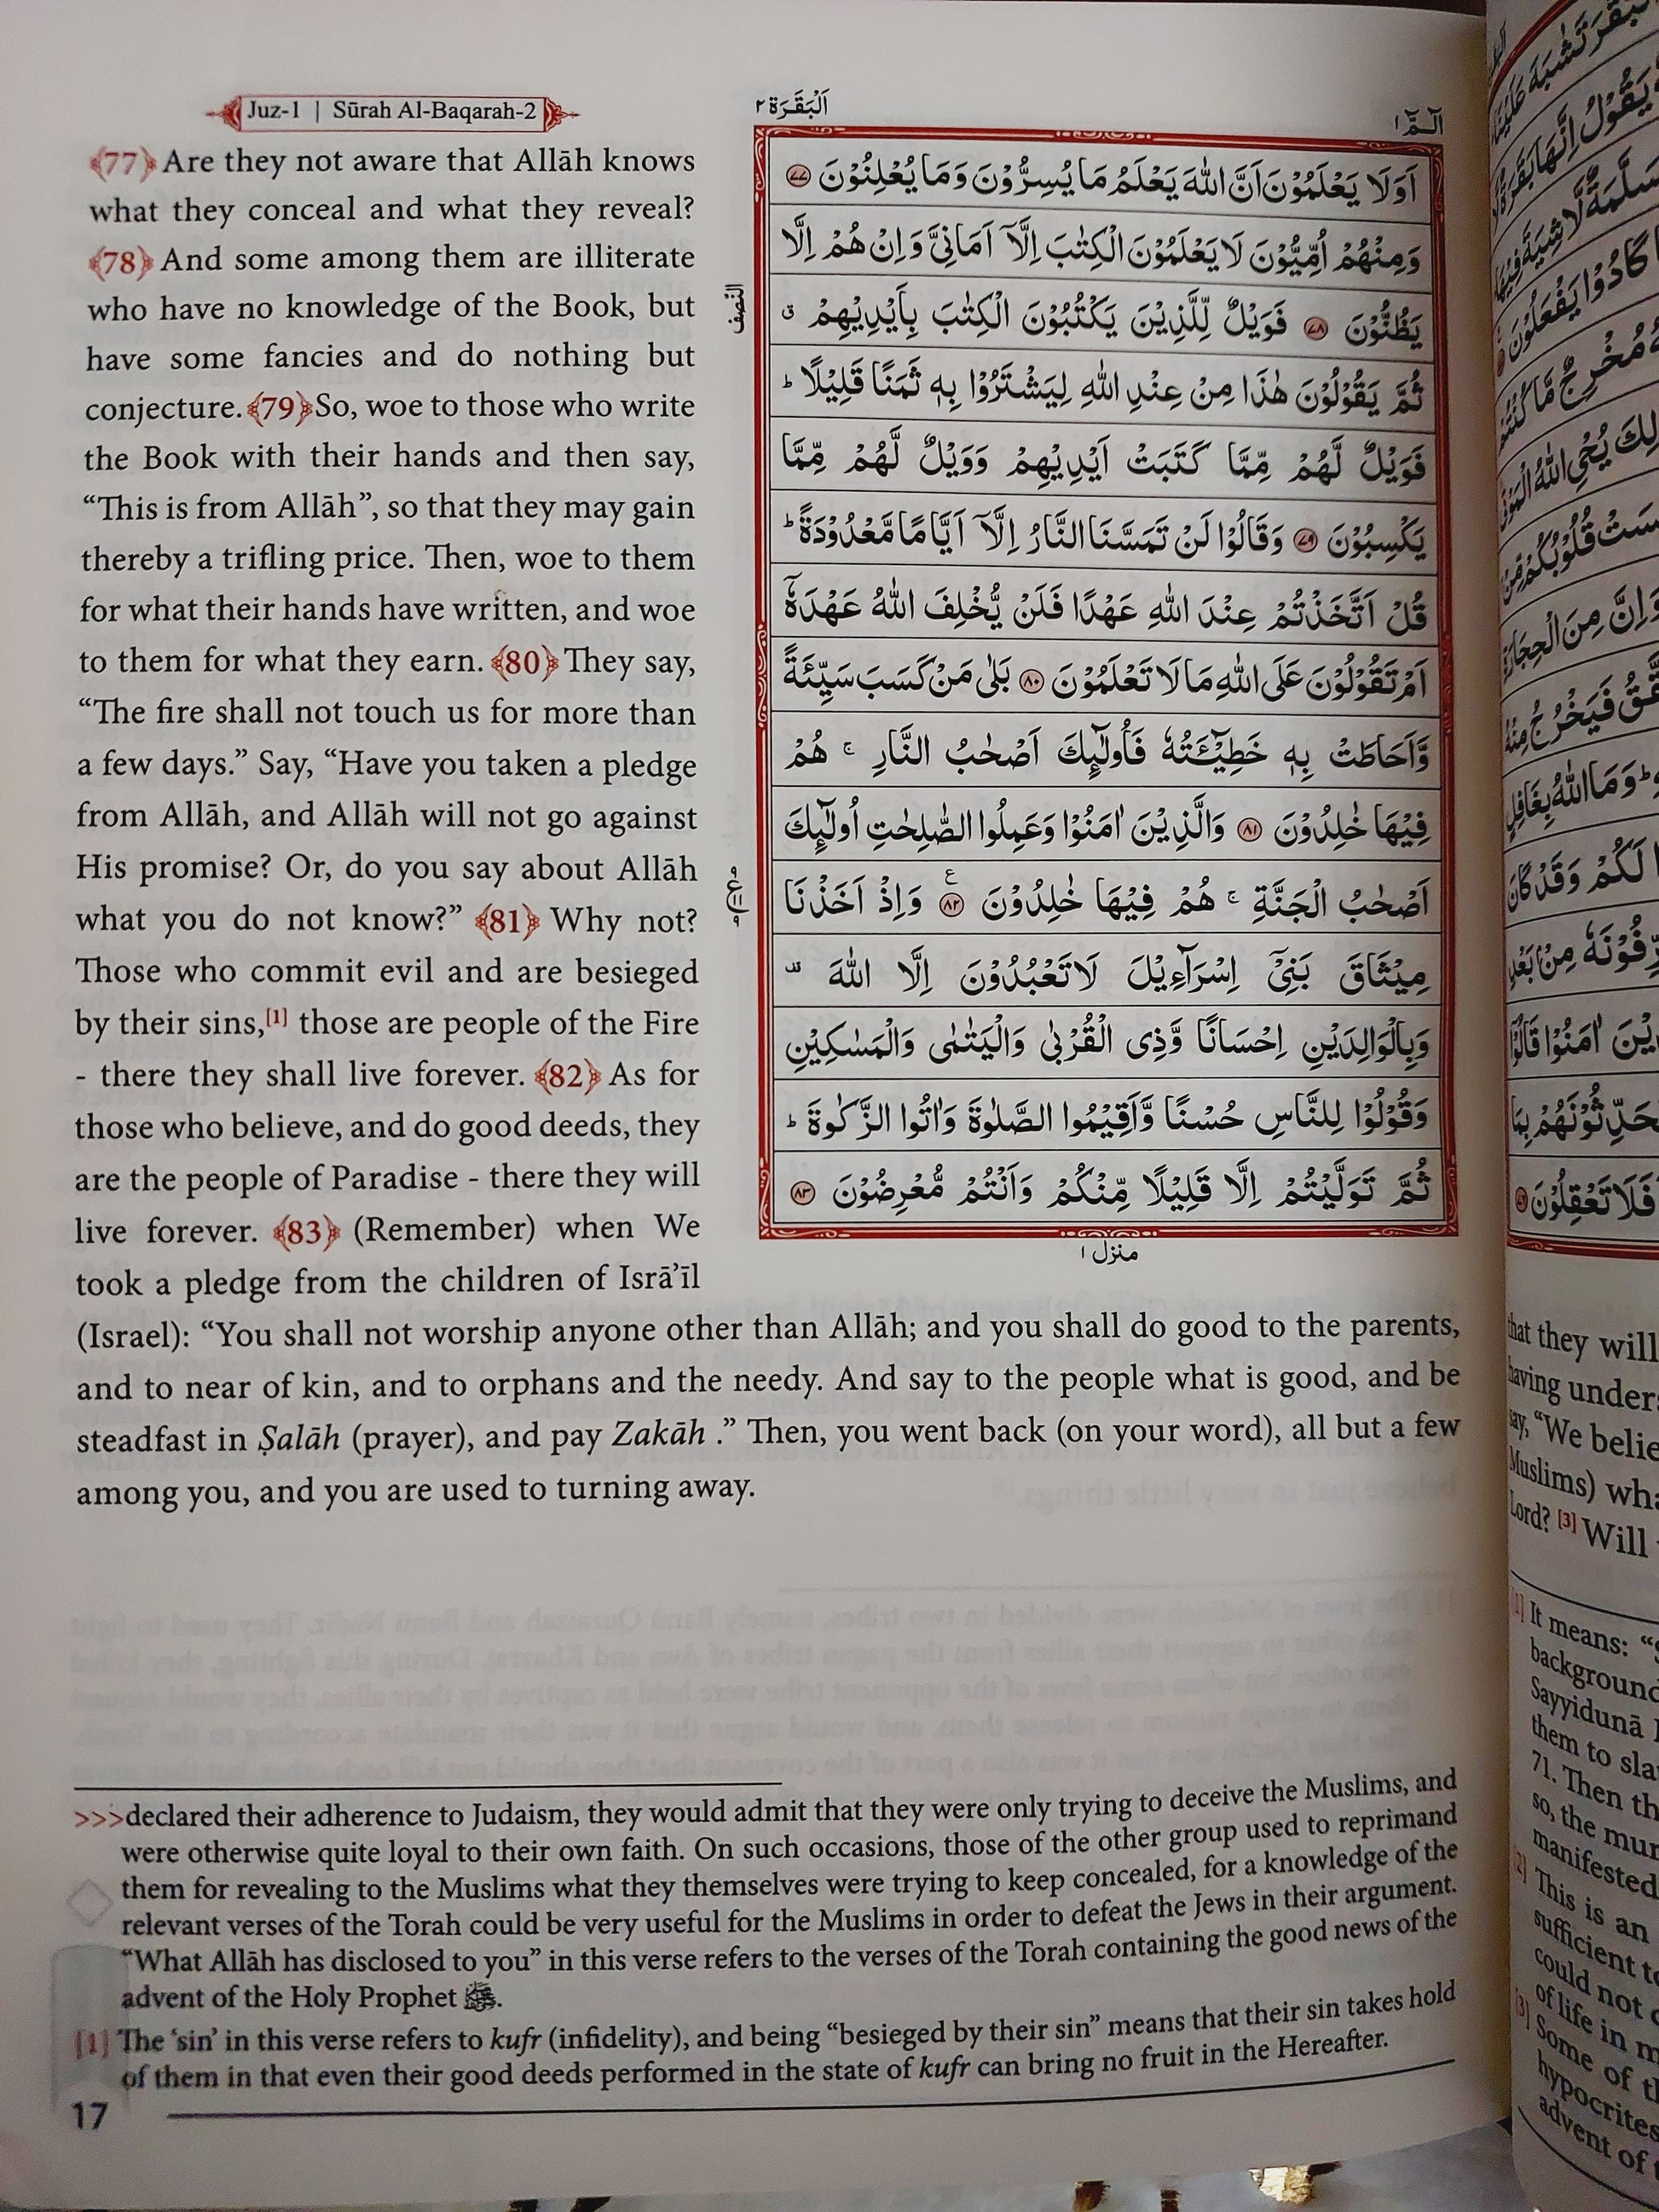 Juz-1 | Sūrah Al-Baqarah-2
اَلْبَقَرَة ٢
آلـمّٓ ١
﴾77﴿ Are they not aware that Allāh knows
what they conceal and what they reveal?
﴾78﴿ And some among them are illiterate
who have no knowledge of the Book, but
have some fancies and do nothing but
conjecture. ﴾79﴿ So, woe to those who write
the Book with their hands and then say,
“This is from Allāh”, so that they may gain
thereby a trifling price. Then, woe to them
for what their hands have written, and woe
to them for what they earn. ﴾80﴿ They say,
“The fire shall not touch us for more than
a few days.” Say, “Have you taken a pledge
from Allāh, and Allāh will not go against
His promise? Or, do you say about Allāh
what you do not know?” ﴾81﴿ Why not?
Those who commit evil and are besieged
by their sins,[1] those are people of the Fire
- there they shall live forever. ﴾82﴿ As for
those who believe, and do good deeds, they
are the people of Paradise - there they will
live forever. ﴾83﴿ (Remember) when We
took a pledge from the children of Isrā’īl
اَوَلَا يَعْلَمُوْنَ اَنَّ اللّٰهَ يَعْلَمُ مَا يُسِرُّوْنَ وَمَا يُعْلِنُوْنَ ٧٧
وَمِنْهُمْ اُمِّيُّوْنَ لَا يَعْلَمُوْنَ الْكِتٰبَ اِلَّاۤ اَمَانِيَّ وَاِنْ هُمْ اِلَّا
يَظُنُّوْنَ ٧٨ فَوَيْلٌ لِّلَّذِيْنَ يَكْتُبُوْنَ الْكِتٰبَ بِاَيْدِيْهِمْ ق
ثُمَّ يَقُوْلُوْنَ هٰذَا مِنْ عِنْدِ اللّٰهِ لِيَشْتَرُوْا بِهٖ ثَمَنًا قَلِيْلًا ط
فَوَيْلٌ لَّهُمْ مِّمَّا كَتَبَتْ اَيْدِيْهِمْ وَوَيْلٌ لَّهُمْ مِّمَّا
يَكْسِبُوْنَ ٧٩ وَقَالُوْا لَنْ تَمَسَّنَا النَّارُ اِلَّاۤ اَيَّامًا مَّعْدُوْدَةً ط
قُلْ اَتَّخَذْتُمْ عِنْدَ اللّٰهِ عَهْدًا فَلَنْ يُّخْلِفَ اللّٰهُ عَهْدَهٗۤ
اَمْ تَقُوْلُوْنَ عَلَى اللّٰهِ مَا لَا تَعْلَمُوْنَ ٨٠ بَلٰى مَنْ كَسَبَ سَيِّئَةً
وَّاَحَاطَتْ بِهٖ خَطِيْٓئَتُهٗ فَاُولٰٓئِكَ اَصْحٰبُ النَّارِ ۚ هُمْ
فِيْهَا خٰلِدُوْنَ ٨١ وَالَّذِيْنَ اٰمَنُوْا وَعَمِلُوا الصّٰلِحٰتِ اُولٰٓئِكَ
اَصْحٰبُ الْجَنَّةِ ۚ هُمْ فِيْهَا خٰلِدُوْنَ ٨٢ ع وَاِذْ اَخَذْنَا
مِيْثَاقَ بَنِيْۤ اِسْرَآءِيْلَ لَا تَعْبُدُوْنَ اِلَّا اللّٰهَ قف
وَبِالْوَالِدَيْنِ اِحْسَانًا وَّذِى الْقُرْبٰى وَالْيَتٰمٰى وَالْمَسٰكِيْنِ
وَقُوْلُوْا لِلنَّاسِ حُسْنًا وَّاَقِيْمُوا الصَّلٰوةَ وَاٰتُوا الزَّكٰوةَ ط
ثُمَّ تَوَلَّيْتُمْ اِلَّا قَلِيْلًا مِّنْكُمْ وَاَنْتُمْ مُّعْرِضُوْنَ ٨٣
النصف
منزل ١
(Israel): “You shall not worship anyone other than Allāh; and you shall do good to the parents,
and to near of kin, and to orphans and the needy. And say to the people what is good, and be
steadfast in Ṣalāh (prayer), and pay Zakāh .” Then, you went back (on your word), all but a few
among you, and you are used to turning away.
>>>declared their adherence to Judaism, they would admit that they were only trying to deceive the Muslims, and
were otherwise quite loyal to their own faith. On such occasions, those of the other group used to reprimand
them for revealing to the Muslims what they themselves were trying to keep concealed, for a knowledge of the
relevant verses of the Torah could be very useful for the Muslims in order to defeat the Jews in their argument.
“What Allāh has disclosed to you” in this verse refers to the verses of the Torah containing the good news of the
advent of the Holy Prophet ﷺ.
[1] The ‘sin’ in this verse refers to kufr (infidelity), and being “besieged by their sin” means that their sin takes hold
of them in that even their good deeds performed in the state of kufr can bring no fruit in the Hereafter.
17
that they will
having under
say, “We belie
Muslims) wha
Lord? [3] Will
[1] It means: “
background
Sayyidunā
them to sla
71. Then th
so, the mur
manifested
[2] This is an
sufficient to
could not
of life in m
[3] Some of th
hypocrites
advent of